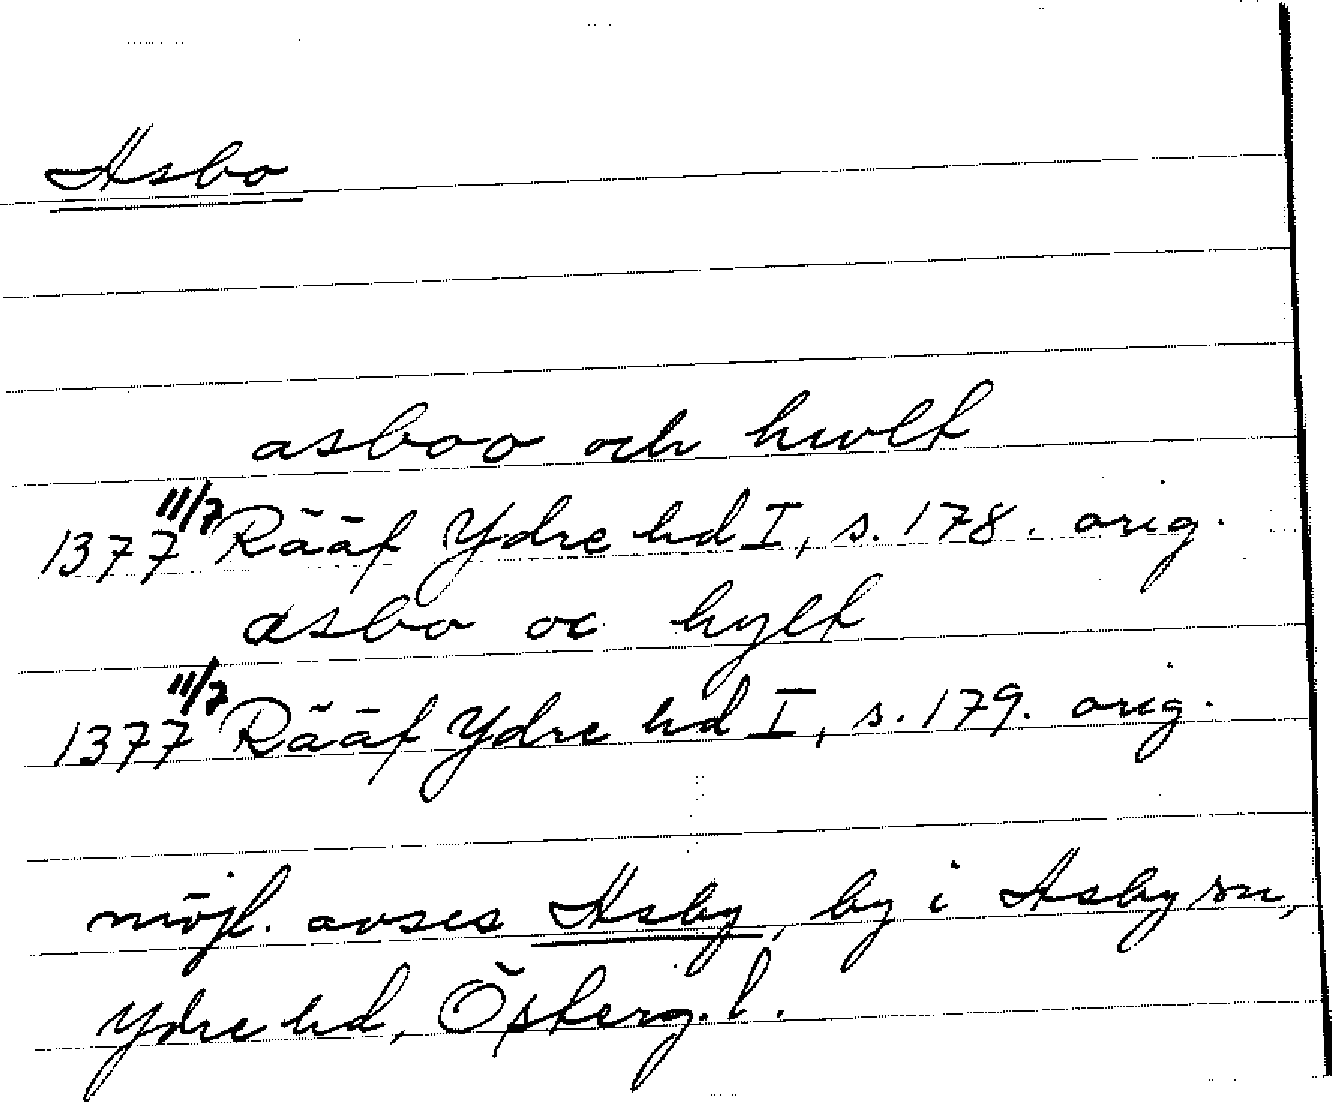 Asbo
asboo och hwlt
1377 11/7 Rääf Ydre hd I, s. 178. orig.
asbo oc hylt
1377 11/7 Rääf Ydre hd I, s. 179. orig.
möjl. avses Asby, by i Asby sn,
Ydre hd, Österg. l.